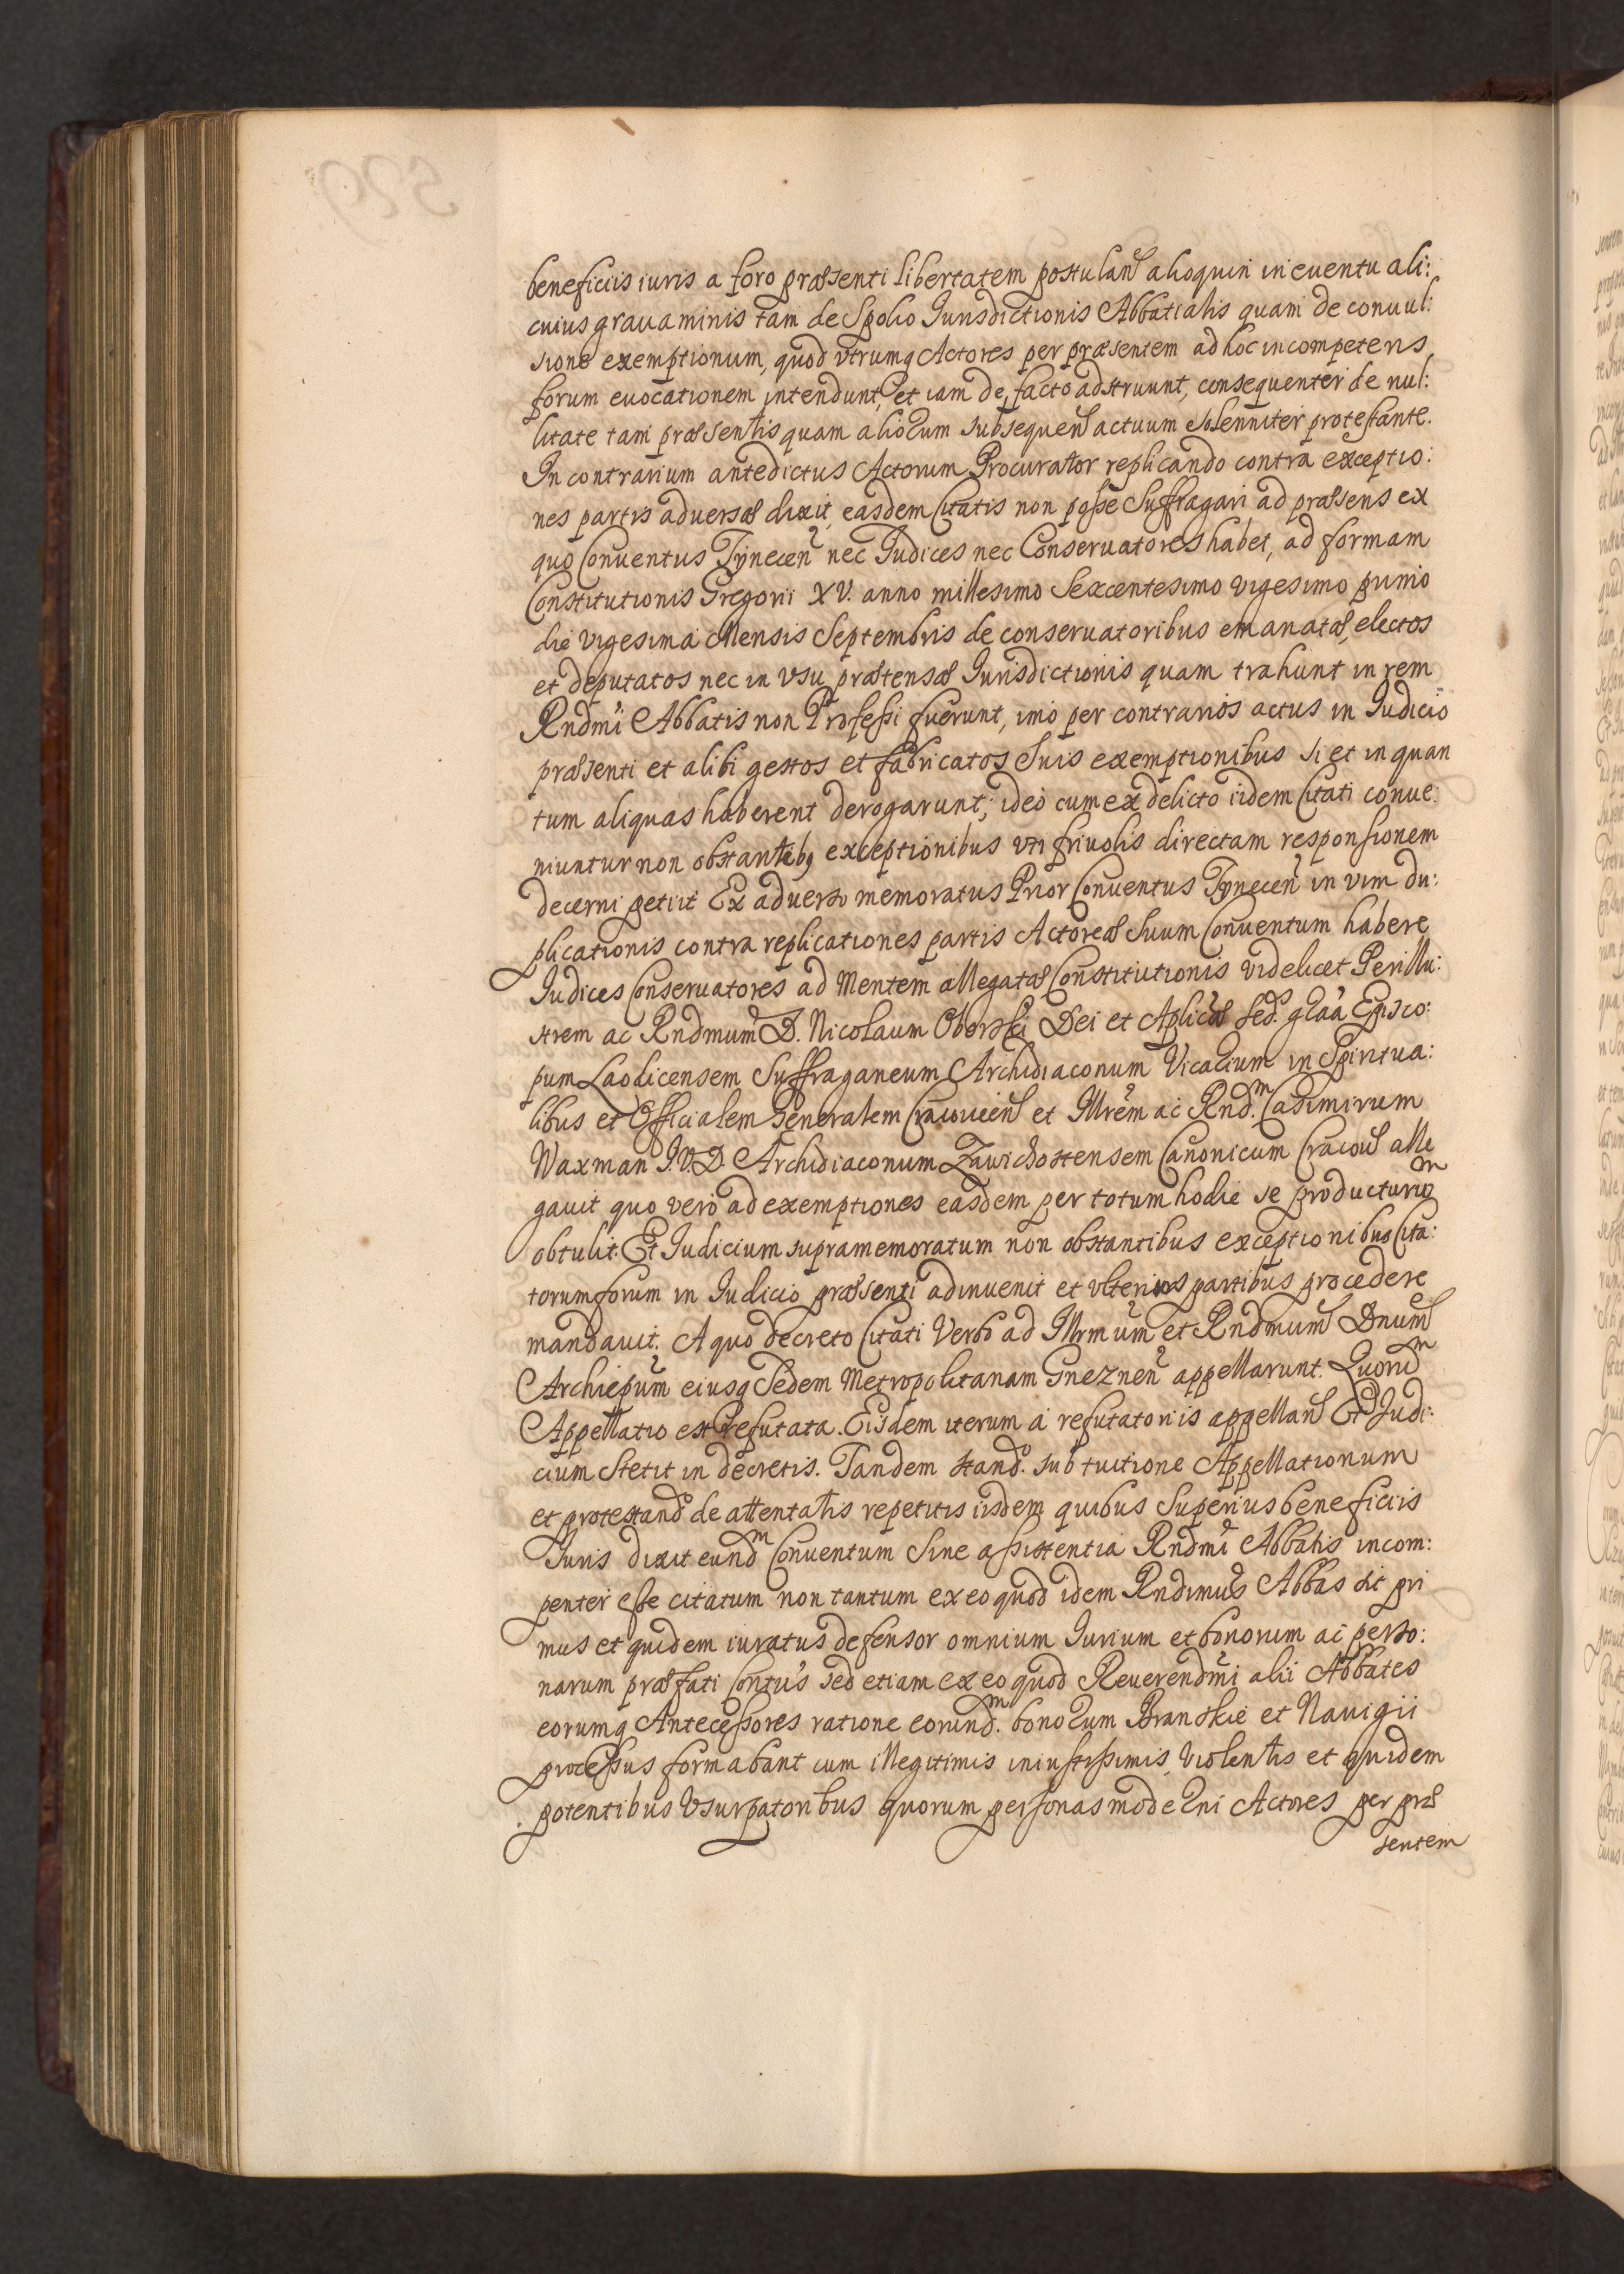 beneficiis iuris a foro præsenti libertatem postulan̄ alioquin in euentu ali:
cuius grauaminis tam de Spolio Iurisdictionis Abbatialis quam de conuul:
sione exemptionum, quod vtrumq Actores per præsentem ad hoc incompetens
forum euocationem intendunt, et iam de facto adstruunt, consequenter de nul:
litate tam præsentis quam aliorum subsequen̄ actuum solenniter protestante.
In contrarium antedictus Actorum Procurator replicando contra exceptio:
nes partis aduersæ dixit, easdem Citatis non posse Suffragari ad præsens ex
quo Conuentus Tynecen̄ nec Iudices nec Conseruatores habet, ad formam
Constitutionis Gregorii XV. anno millesimo Sexcentesimo vigesimo primo
die vigesima Mensis Septembris de conseruatoribus emanatæ, electos
et deputatos nec in vsu prætensæ Iurisdictionis quam trahunt in rem
Rndmi Abbatis non Professi fuerunt, imo per contrarios actus in Iudicio
præsenti et alibi gestos et fabricatos Suis exemptionibus si et in quan
tum aliquas haberent derogarunt; ideo cum ex delicto iidem Citati conue:
niuntur non obstantibq exceptionibus vti friuolis directam responsionem
decerni petiit Ex aduerso memoratus Prior Conuentus Tynecen̄ in vim du:
plicationis contra replicationes partis Actoreæ Suum Conuentum habere
Iudices Conseruatores ad Mentem allegatæ Constitutionis videlicet Perillu:
strem ac Rndmum D. Nicolaum Oborski Dei et Aplicæ Sed. gr̄aa Episco:
pum Laodicensem Suffraganeum Archidiaconum Vicarium in Spiritua:
libus et Officialem Generalem Cracouien̄ et Illrem ac Rnd.m Casimirum
Waxman I.V.D. Archidiaconum Zawichostensem Canonicum Cracou̅ alle
gauit quo vero ad exemptiones easdem per totum hodie se producturum
obtulit. Et Iudicium supramemoratum non obstantibus exceptionibus Cita:
torum forum in Iudicio præsenti adinuenit et vlterius partibus procedere
mandauit. A quo decreto Citati Verbo ad Illrmum et Rndmum Dnum
Archiepum eiusq Sedem Metropolitanam Gneznen̄ appellarunt. Quorudm
Appellatio est refutata. Eisdem iterum a refutatoriis appellan̄ Et Iudi:
cium Stetit in decretis. Tandem stand.o sub tuitione Appellationum
et protestand.o de attentatis repetitis iisdem quibus Superius beneficiis
Iuris dixit eundm Conuentum Sine assistentia Rndmi Abbatis incom:
penter esse citatum non tantum ex eo quod idem Rndmus Abbas sit pri
mus et quidem iuratus defensor omnium Iurium et bonorum ac perso:
narum præfati Contus sed etiam ex eo quod Reuerendmi alii Abbates
eorumq Antecessores ratione eorund.m bonorum Branskie et Nauigii
processus formabant cum illegitimis iniustissimis, violentis et quidem
potentibus Vsurpatoribus quorum personas moderni Actores per præ
sentem